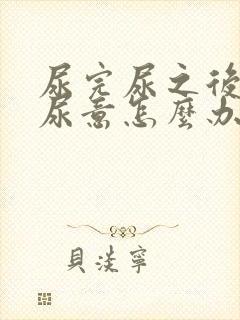 尿完尿之後
尿意怎麼办
貝淡寧